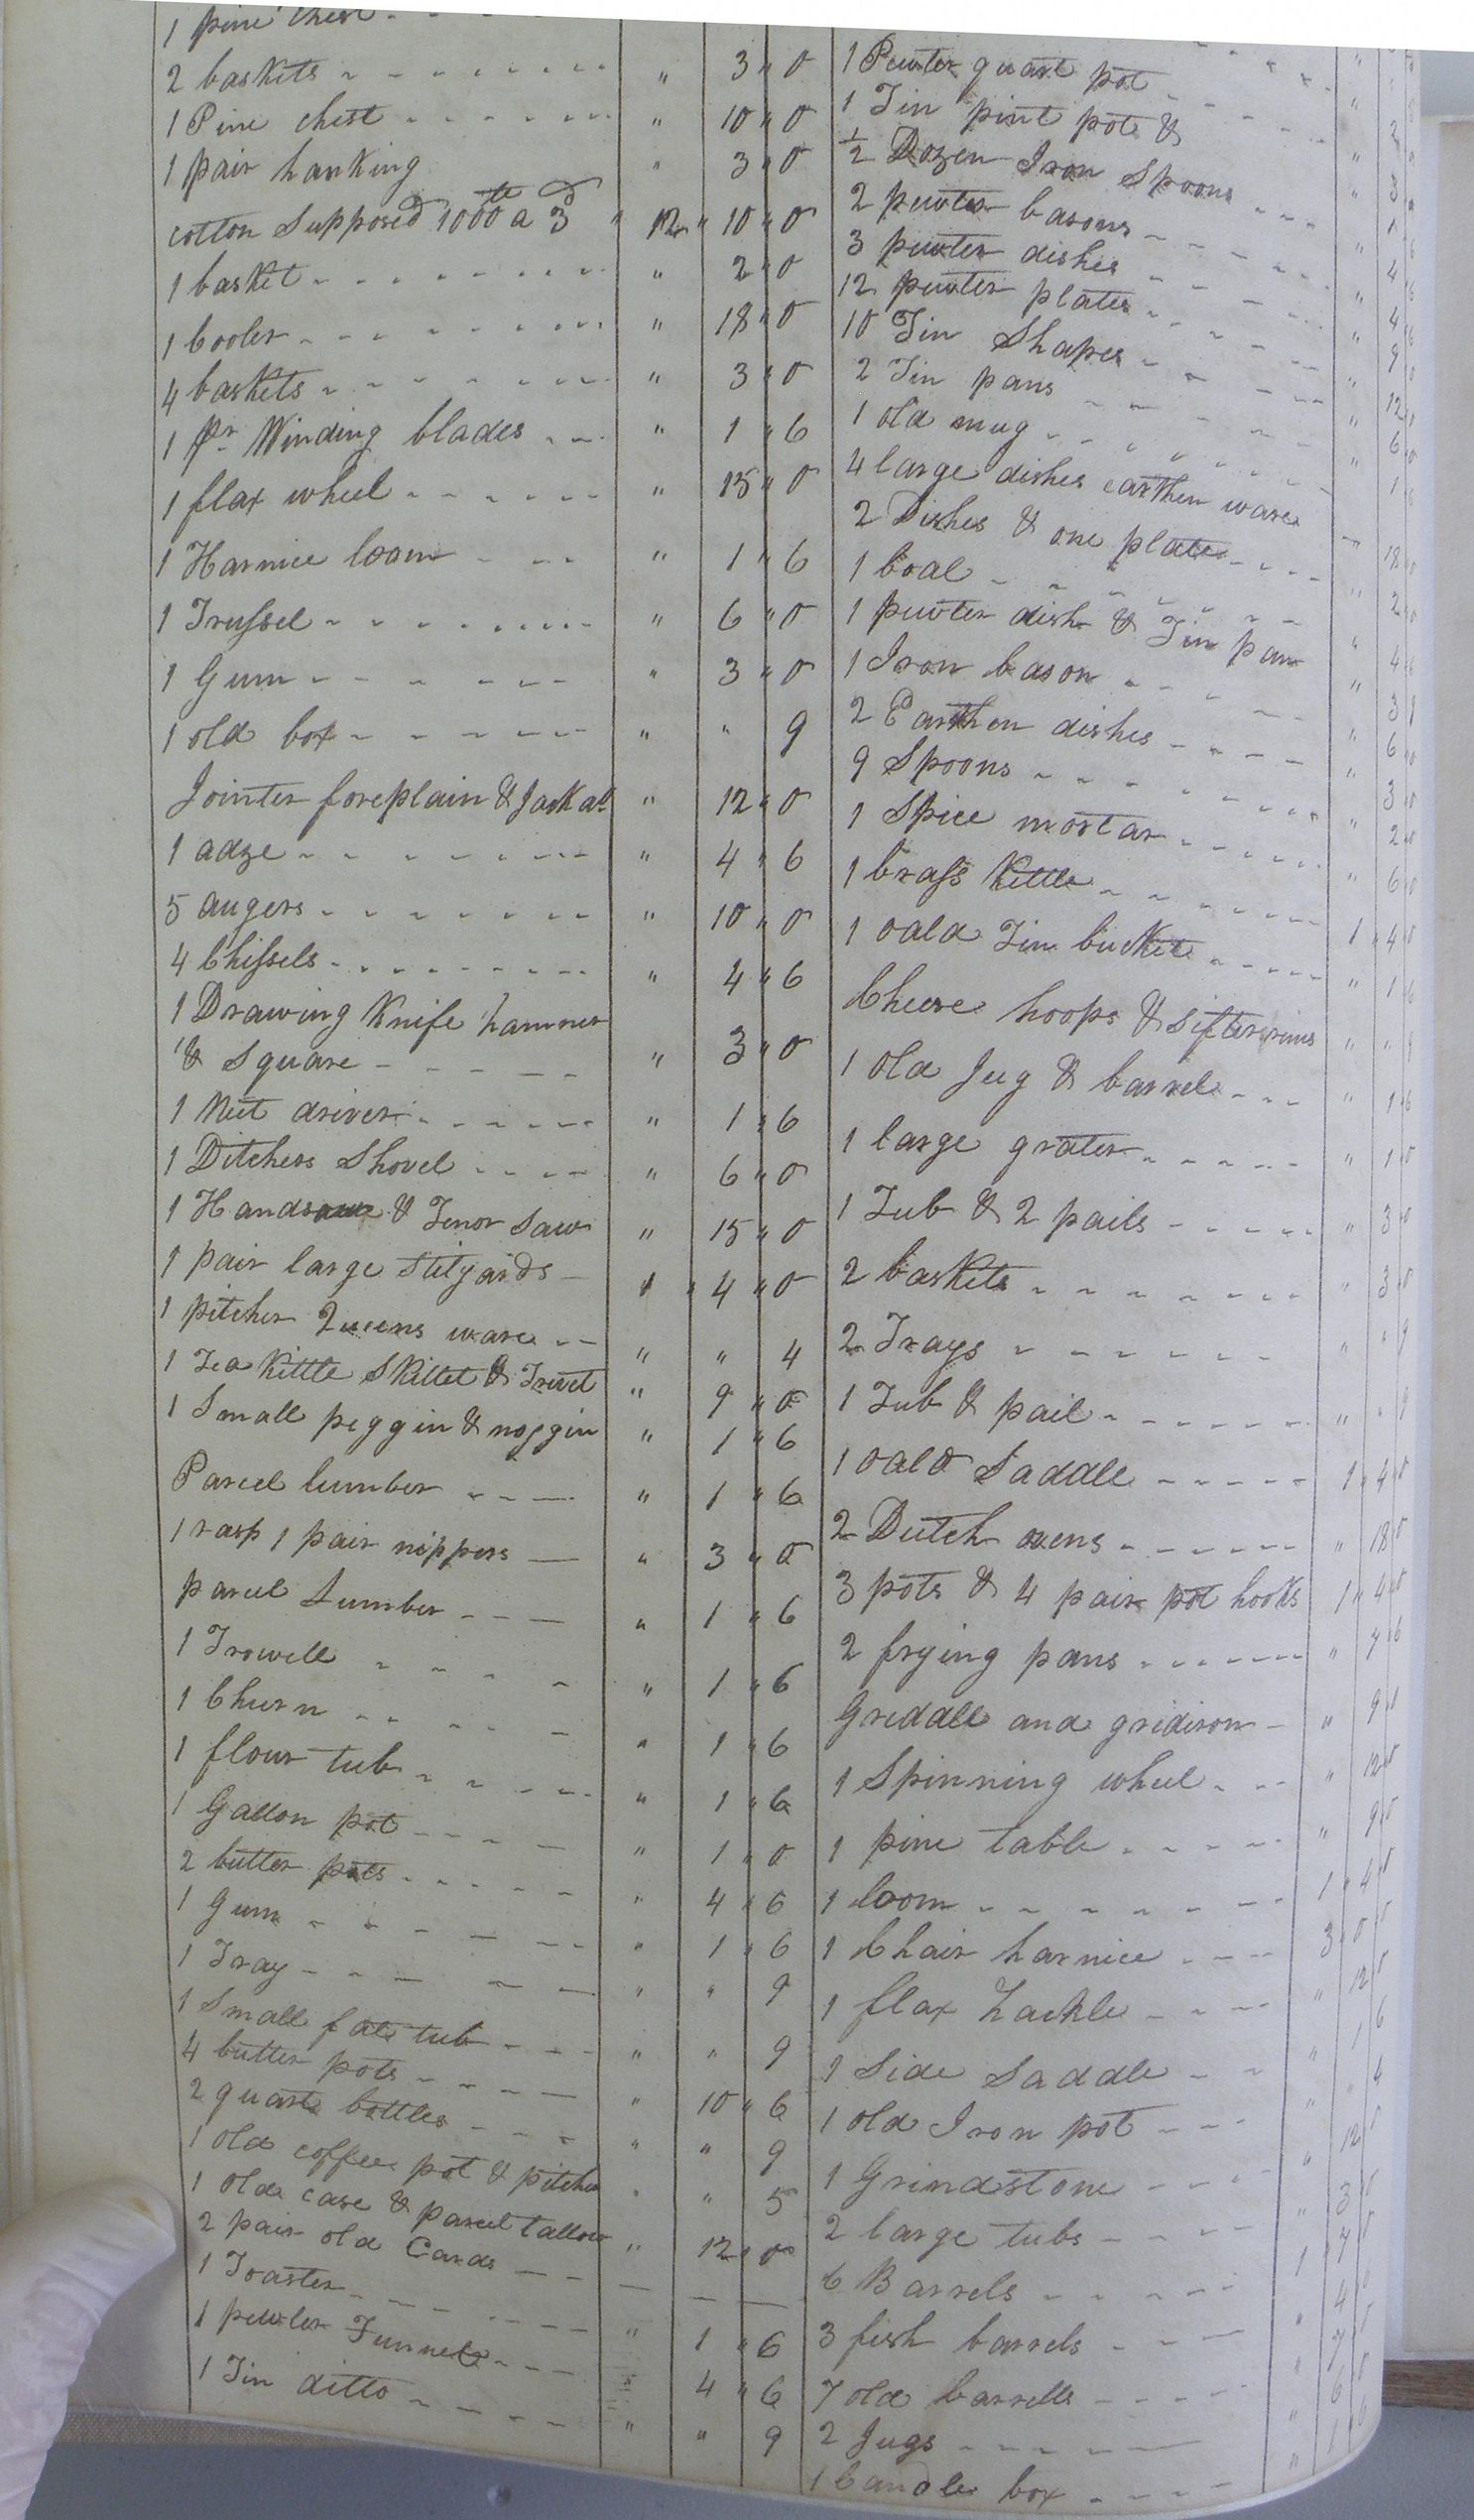 1 pine chest
2 baskets " 3 " 0
1 Pine chest " 10 " 0
1 pair hanking " 3 " 0
cotton Supposed 1000 lb a 3d " 12 " 10 " 0
1 basket " 2 " 0
1 Cooler " 18 " 0
4 baskets " 3 " 0
1 pr Winding blades " 1 " 6
1 flax wheel " 15 " 0
1 Harnice loom " 1 " 6
1 Trussel " 6 " 0
1 Gum " 3 " 0
1 old box " " 9
Jointer foreplain & Jack at " 12 " 0
1 adze " 4 " 6
5 augers " 10 " 0
4 Chissels " 4 " 6
1 Drawing Knife hammer
& Square " 3 " 0
1 Nut driver " 1 " 6
1 Ditchers Shovel " 6 " 0
1 Handsaw & Tenor Saw " 15 " 0
1 pair large Stilyards 1 " 4 " 0
1 pitcher Queens ware " " 4
1 Tea Kittle Skillet & Trivet " 9 " 0
1 Small peggin & noggin " 1 " 6
Parcel lumber " 1 " 6
1 rasp 1 pair nippers " 3 " 0
parcel Lumber " 1 " 6
1 Trowell " 1 " 6
1 Churn " 1 " 6
1 flour tub " 1 " 6
1 Gallon pot " 1 " 0
2 butter pots " 4 " 6
1 Gum " 1 " 6
1 Tray " " 9
1 Small fat tub " " 9
4 butter pots " 10 " 6
2 quart bottles " " 9
1 old coffee pot & pitcher " " 5
1 old case & parcel tallow " 12 " 0
2 pair old Cards
1 Toaster " 1 " 6
1 pewter Funnel " 4 " 6
1 Tin ditto " " 9
1 Pewter quart pot
1 Tin pint pot &
1/2 Dozen Iron Spoons
2 pewter basons
3 pewter dishes
12 pewter plates
10 Tin Shapes
2 Tin pans
1 old mug
4 large dishes earthen ware
2 Dishes & one plate
1 boal
1 pewter dish & Tin pan
1 Iron bason
2 Earthen dishes
9 Spoons
1 Spice mortar
1 brass Kittle
1 oald Tin bucket
Cheese hoops & sifter rims
1 old Jug & barrel " 1 " 6
1 large grater " 1 " 0
1 Tub & 2 pails " 3 " 0
2 baskets " 3 " 0
2 Trays " " 9
1 Tub & pail " " 9
1 oald Saddle 1 " 4 " 0
2 Dutch ovens " 18 " 0
3 pots & 4 pair pot hooks 1 " 4 " 0
2 frying pans " 7 " 6
Griddle and gridiron " 9 " 0
1 Spinning wheel " 12 " 0
1 pine table " 9 " 0
1 loom 1 " 4 " 0
1 Chair harnice 3 " 0 " 0
1 flax hackle
1 Side Saddle
1 old Iron pot
1 Grindstone
2 large tubs
6 Barrels
3 fish barrels
7 old barrells
2 Jugs
1 Candle box